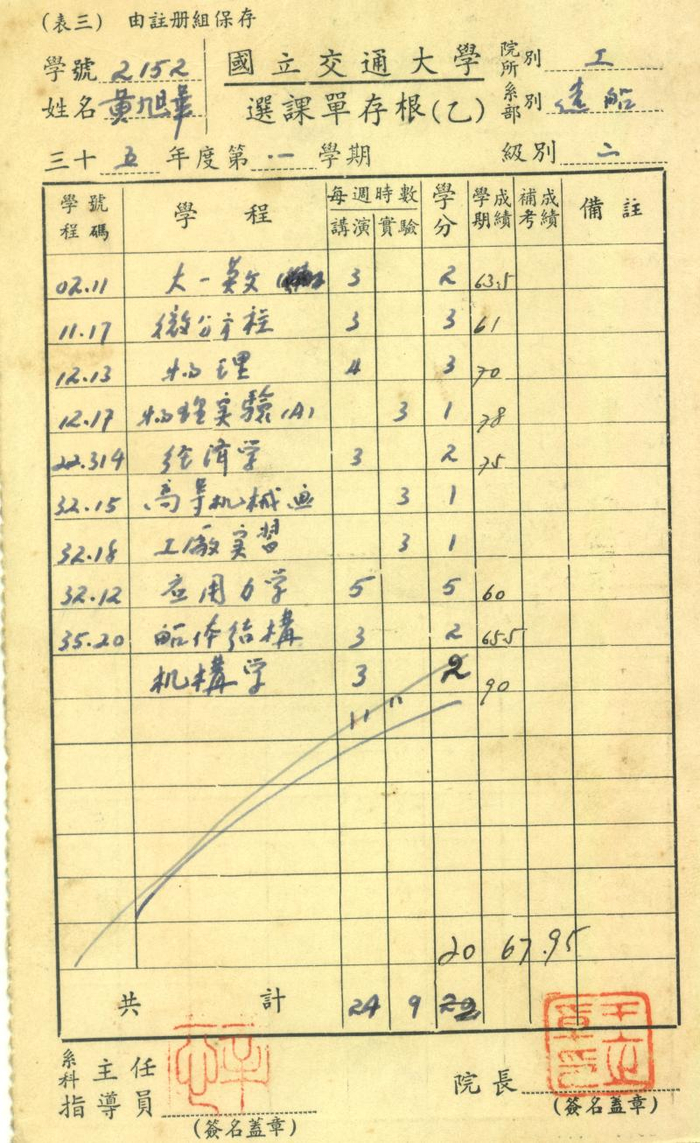 (表三) 由註册組保存
學號 2152 國立交通大學 院所別 工
姓名 黃旭華 選課單存根(乙) 系部別 造船
三十五年度第一學期 級別 二
學程號碼 學程 每週時數 講演 實驗 學分 學期成績 補考成績 備註
02.11 大一英文 3 2 63.5
11.17 微分方程 3 3 61
12.13 物理 4 3 70
12.17 物理实驗(A) 3 1 78
22.314 经濟学 3 2 75
32.15 高等机械画 3 1
32.18 工廠实習 3 1
32.12 应用力学 5 5 60
35.20 船体结構 3 2 65.5
机構学 3 2 90
20 67.95
共計 24 9 22
系科 主任 指導員 院長
(簽名蓋章) (簽名蓋章)